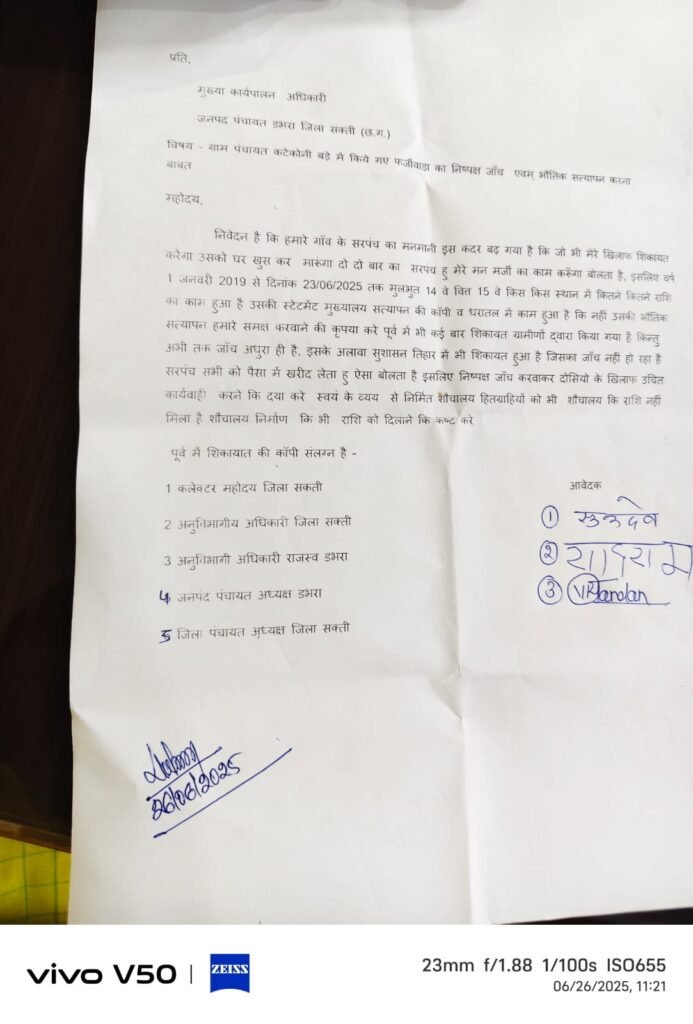 प्रति,
मुख्या कार्यपालन अधिकारी
जनपद पंचायत डभरा जिला सक्ती (छ.ग.)
विषय - ग्राम पंचायत कटेकोनी बड़े में किये गए फर्जीवाड़ा का निष्पक्ष जाँच एवम् भौतिक सत्यापन करना
बाबत
महोदय,
निवेदन है कि हमारे गाँव के सरपंच का मनमानी इस कदर बढ़ गया है कि जो भी मेरे खिलाफ शिकायत
करेगा उसको घर घुस कर मारूंगा दो दो बार का सरपंच हु मेरे मन मर्जी का काम करूँगा बोलता है, इसलिए वर्ष
1 जनवरी 2019 से दिनांक 23/06/2025 तक मुलभुत 14 वे वित्त 15 वे किस किस स्थान में कितने कितने राशि
का काम हुआ है उसकी स्टेटमेंट मुख्यालय सत्यापन की कॉपी व धरातल में काम हुआ है कि नहीं उसकी भौतिक
सत्यापन हमारे समक्ष करवाने की कृपया करे पूर्व में भी कई बार शिकायत ग्रामीणों द्वारा किया गया है किन्तु
अभी तक जाँच अधुरा ही है, इसके अलावा सुशासन तिहार में भी शिकायत हुआ है जिसका जाँच नहीं हो रहा है
सरपंच सभी को पैसा में खरीद लेता हु ऐसा बोलता है इसलिए निष्पक्ष जाँच करवाकर दोसियो के खिलाफ उचित
कार्यवाही करने कि दया करे स्वयं के व्यय से निर्मित शौचालय हितग्राहियों को भी शौचालय कि राशि नहीं
मिला है शौचालय निर्माण कि भी राशि को दिलाने कि कष्ट करे
पूर्व में शिकायात की कॉपी संलग्न है -
1 कलेक्टर महोदय जिला सक्ती
2 अनुविभागीय अधिकारी जिला सक्ती
3 अनुविभागी अधिकारी राजस्व डभरा
4 जनपद पंचायत अध्यक्ष डभरा
5 जिला पंचायत अध्यक्ष जिला सक्ती
आवेदक
① सुकदेव
②
③ VPTandan
26/06/2025
vivo V50 | ZEISS
23mm f/1.88 1/100s ISO655
06/26/2025, 11:21